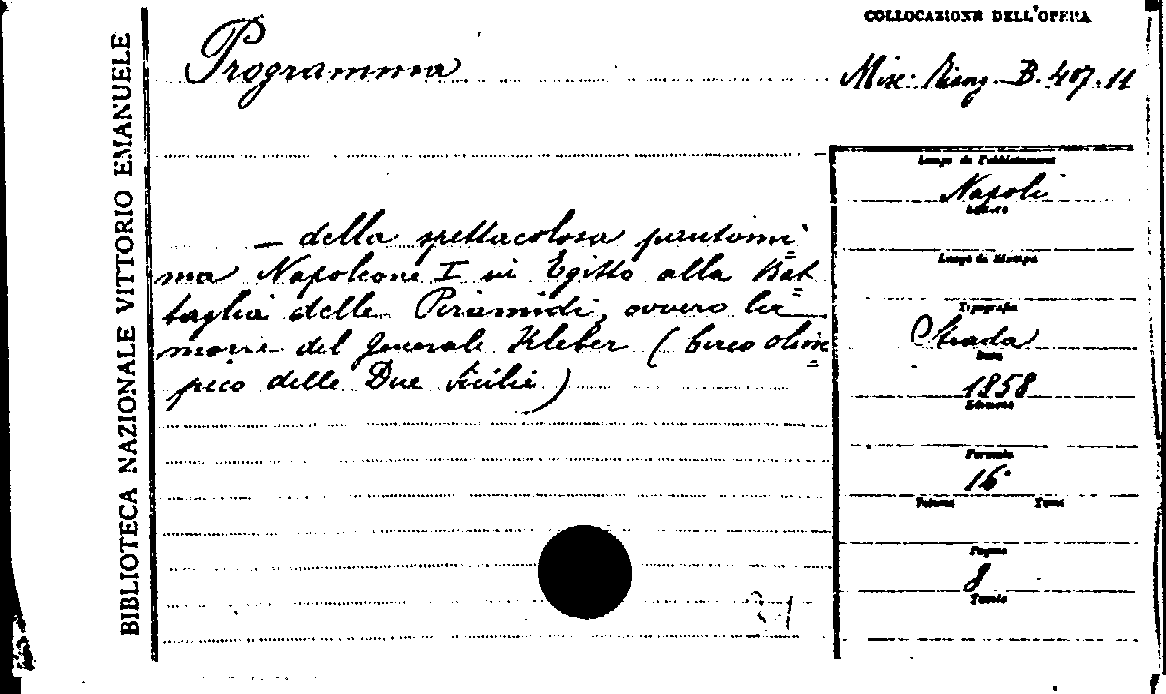 BIBLIOTECA NAZIONALE VITTORIO EMANUELE
Programma
— della spettacolosa pantomi=
ma Napoleone I in Egitto alla Bat=
taglia delle Piramidi, ovvero la
morte del Generale Kleber (Circo olim=
pico delle Due Sicilie)
COLLOCAZIONE DELL'OPERA
Misc. B. 407.11
Luogo di Pubblicazione
Napoli
Editore
Luogo di Stampa
Tipografia
Strada
Data
1858
Edizione
Formato
16°
Volume Tomo
Pagine
8
Tavole